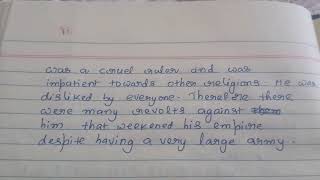 was a cruel ruler and was
impatient towards other religions. He was
disliked by everyone. Therefore there
were many revolts against
him that weekened his empire
despite having a very large army.